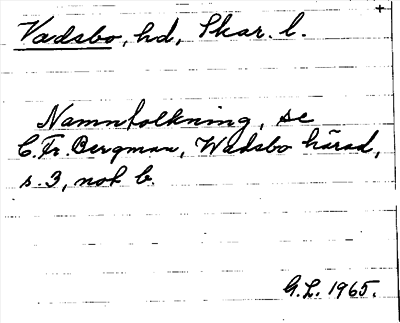 Vadsbo, hd, Skar. l.
Namntolkning, se
C. Fr. Bergman, Wadsbo härad,
s. 3, not b.
G. L. 1965.